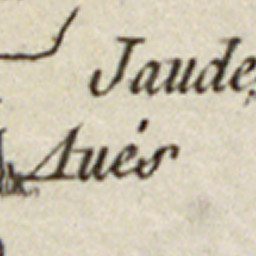 Jaude
Aués